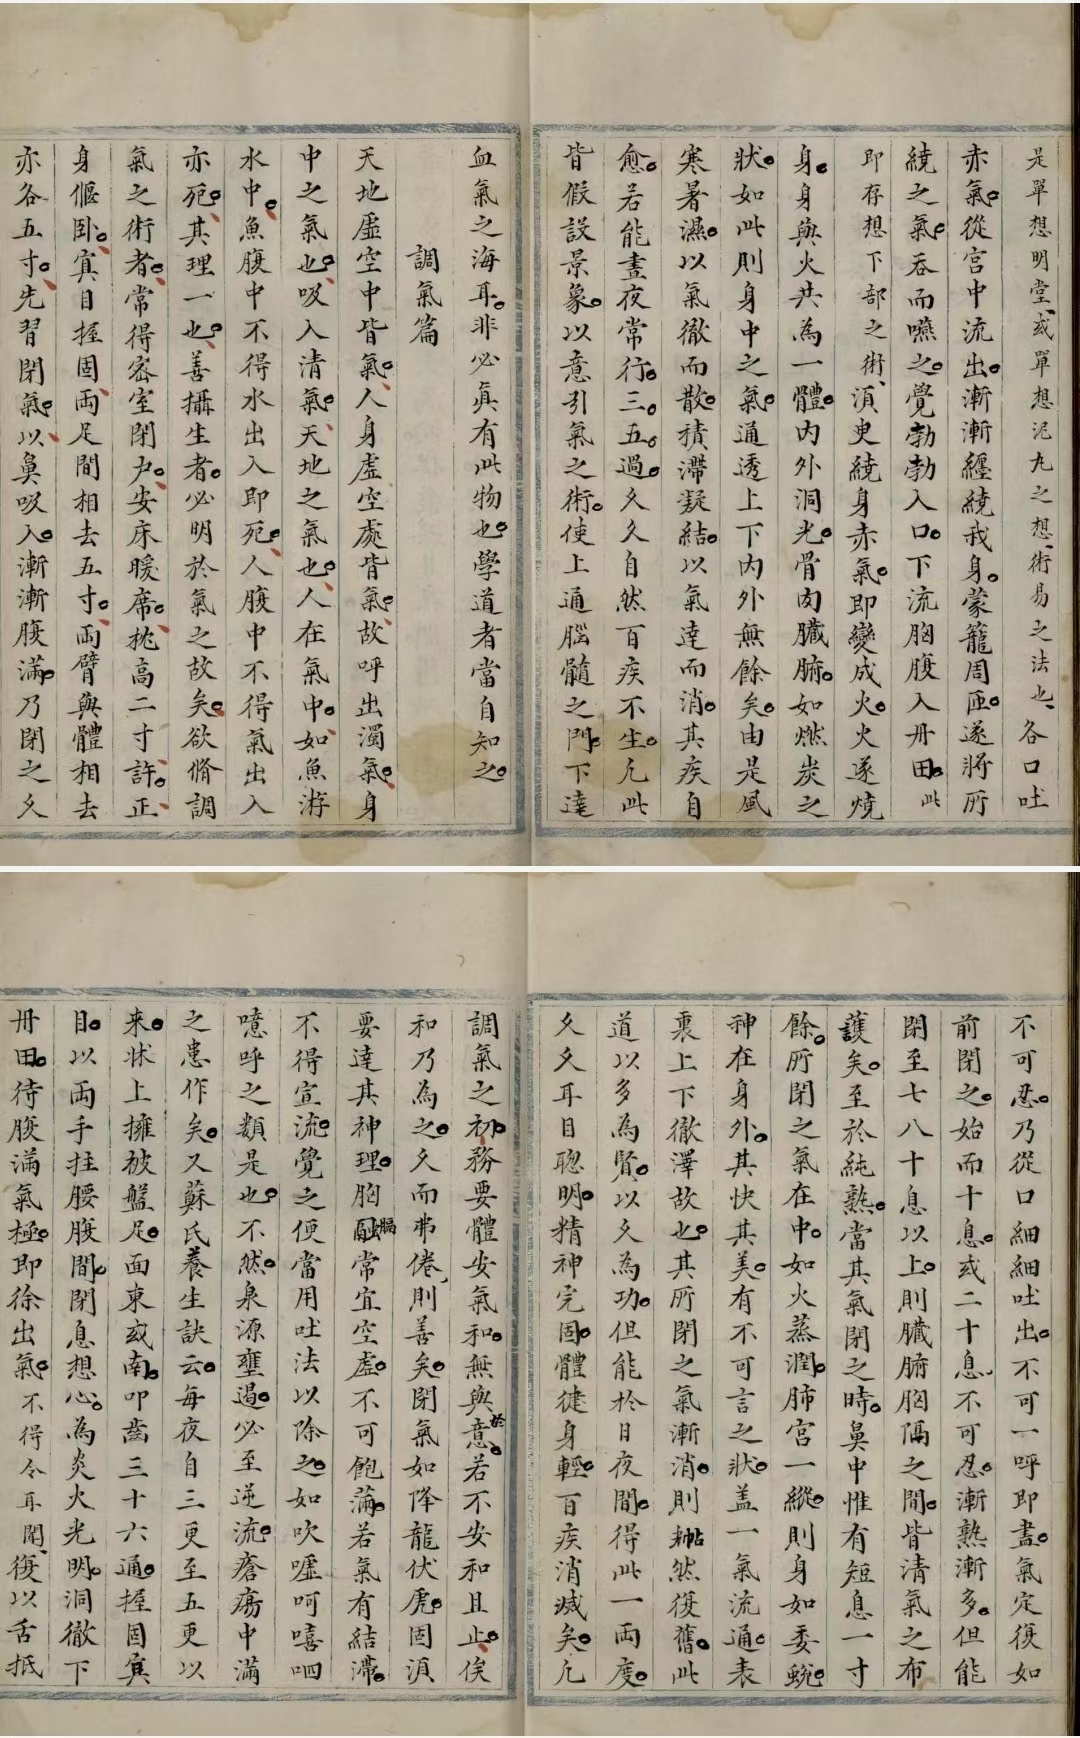 是單想明堂或單想泥丸之想術易之法也各口吐
赤氣從宮中流出漸漸纏繞我身蒙籠周匝遂將所
繞之氣吞而嚥之覺勃勃入口下流胸腹入丹田此
即存想下部之術須臾繞身赤氣即變成火火遂燒
身身與火共為一體內外洞光骨肉臟腑如燃炭之
狀如此則身中之氣通透上下內外無餘矣由是風
寒暑濕以氣徹而散積滯凝結以氣達而消其疾自
愈若能晝夜常行三五過久久自然百疾不生凡此
皆假設景象以意引氣之術使上通腦髓之門下達
血氣之海耳非必眞有此物也學道者當自知之
調氣篇
天地虛空中皆氣人身虛空處皆氣故呼出濁氣身
中之氣也吸入清氣天地之氣也人在氣中如魚游
水中魚腹中不得水出入即死人腹中不得氣出入
亦死其理一也善攝生者必明於氣之故矣欲脩調
氣之術者常得密室閉户安床暖席枕高二寸許正
身偃卧寘目握固兩足間相去五寸兩臂與體相去
亦各五寸先習閉氣以鼻吸入漸漸腹滿乃閉之久
不可忍乃從口細細吐出不可一呼即盡氣定復如
前閉之始而十息或二十息不可忍漸熟漸多但能
閉至七八十息以上則臟腑胸隔之間皆清氣之布
護矣至於純熟當其氣閉之時鼻中惟有短息一寸
餘所閉之氣在中如火蒸潤肺宮一縱則身如委蛻
神在身外其快其美有不可言之狀盖一氣流通表
裏上下徹澤故也其所閉之氣漸消則恍然復舊此
道以多為賢以久為功但能於日夜間得此一兩度
久久耳目聰明精神完固體健身輕百疾消滅矣凡
調氣之初務要體安氣和無與於意若不安和且止俟
和乃為之久而弗倦則善矣閉氣如降龍伏虎固須
要達其神理胸膈常宜空虛不可飽滿若氣有結滯
不得宣流覺之便當用吐法以除之如吹噓呵嘻呬
噫呼之類是也不然泉源壅遏必至逆流瘡瘍中滿
之患作矣又蘇氏養生訣云每夜自三更至五更以
来牀上擁被盤足面東或南叩齒三十六通握固寘
目以兩手拄腰腹間閉息想心為炎火光明洞徹下
丹田待腹滿氣極即徐出氣不得令耳聞復以舌抵